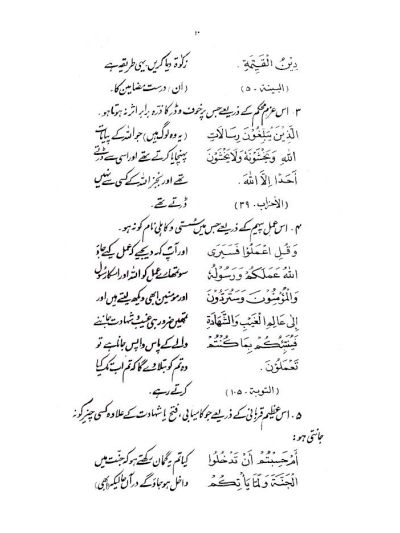 ۱۰
دِينُ الْقَيِّمَةِ. زکوٰۃ دیا کریں یہی طریقہ ہے
(البینۃ - ۵) (ان) درست مضامین کا۔
۳ ۔ اس عزم محکم کے ذریعے جس پر خوف و ڈر کا ذرہ برابر اثر نہ ہوتا ہو۔
الَّذِينَ يُبَلِّغُونَ رِسَالَاتِ (یہ وہ لوگ ہیں) جو اللہ کے پیغامات
اللهِ وَيَخْشَوْنَهُ وَلَا يَخْشَوْنَ پہنچایا کرتے تھے اور اسی سے ڈرتے
أَحَدًا إِلَّا اللهَ. تھے اور بجز اللہ کے کسی سے نہیں
(الأحزاب - ۳۹) ڈرتے تھے۔
۴ ۔ اس عمل پیہم کے ذریعے جس میں سستی و کاہلی نام کو نہ ہو۔
وَقُلِ اعْمَلُوا فَسَيَرَى اور آپ کہہ دیجئے کہ عمل کیے جاؤ
اللهُ عَمَلَكُمْ وَرَسُولُهُ سو تمھارے عمل کو اللہ اور اسکا رسول
وَالْمُؤْمِنُونَ وَسَتُرَدُّونَ اور مومنین ابھی دیکھ لیتے ہیں اور
إِلَى عَالِمِ الْغَيْبِ وَالشَّهَادَةِ تمھیں ضرور ہی غیب و شہادت جاننے
فَيُنَبِّئُكُمْ بِمَا كُنْتُمْ والے کے پاس واپس جانا ہے تو
تَعْمَلُونَ. وہ تم کو بتلا دے گا کہ تم اب تک کیا
(التوبة - ۱۰۵) کرتے رہے۔
۵ ۔ اس عظیم قربانی کے ذریعے جو کامیابی، فتح یا شہادت کے علاوہ کسی چیز کو نہ
جانتی ہو:
أَمْ حَسِبْتُمْ أَنْ تَدْخُلُوا کیا تم یہ گمان رکھتے ہو کہ جنت میں
الْجَنَّةَ وَلَمَّا يَأْتِكُمْ داخل ہو جاؤ گے در آں حالیکہ (ابھی)